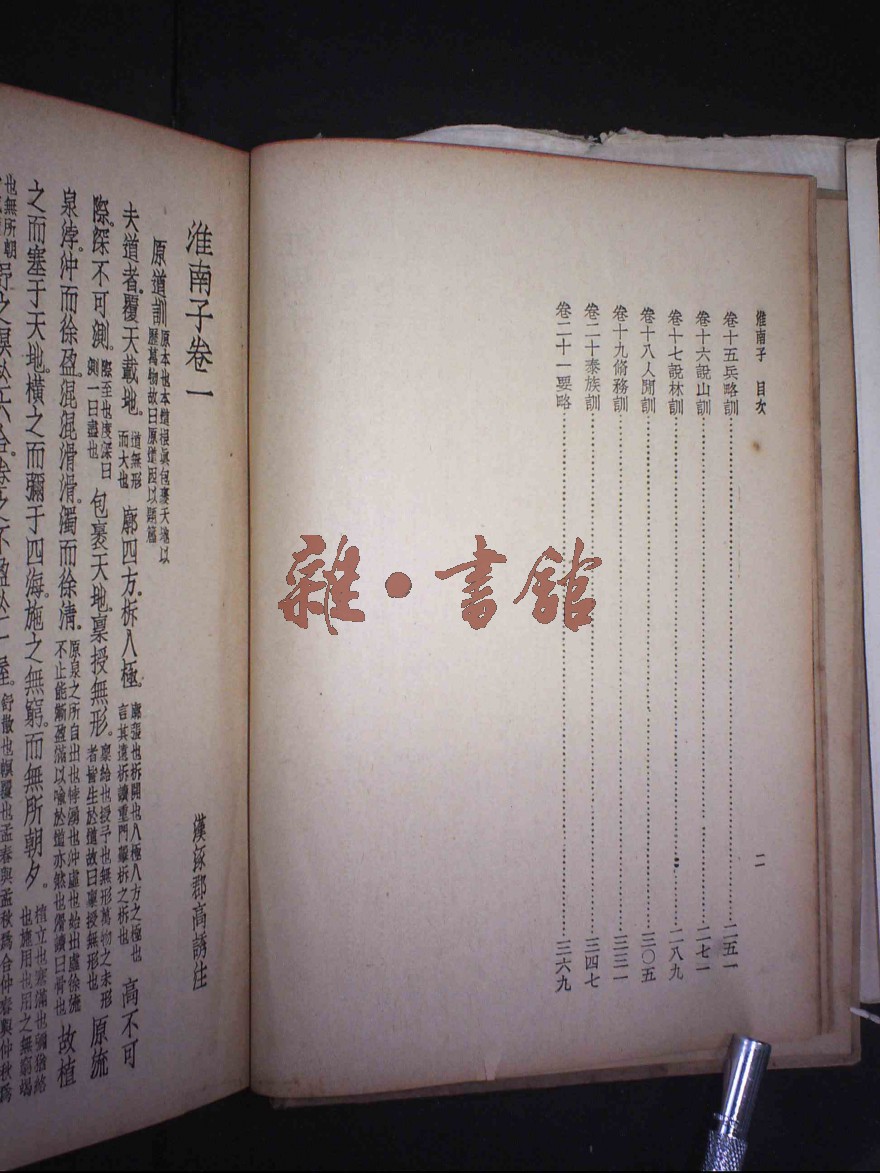 淮南子 目次
二
卷十五兵略訓……二五一
卷十六說山訓……二七一
卷十七說林訓……二八九
卷十八人閒訓……三〇五
卷十九脩務訓……三三一
卷二十泰族訓……三四七
卷二十一要略……三六九
雜・書館
淮南子卷一
漢涿郡高誘注
原道訓 原本也本道根眞包裹天地以歷萬物故曰原道因以題篇
夫道者。覆天載地。道無形而大也廓四方。柝八極。廓張也柝開也八極八方之極也言其遠柝讀重門擊柝之柝也高不可
際。深不可測。際至也度深曰測一曰盡也包裹天地。稟授無形。稟給也授予也無形萬物之未形者皆生於道故曰稟授無形也原流
泉浡。沖而徐盈。混混滑滑。濁而徐清。原泉之所自出也浡涌也沖虛也始出虛徐流不止能漸盈滿以喻於道亦然也滑讀曰骨也故植
之而塞于天地。橫之而彌于四海。施之無窮。而無所朝夕。植立也塞滿也彌猶絡也施用也用之無窮竭
也無所朝